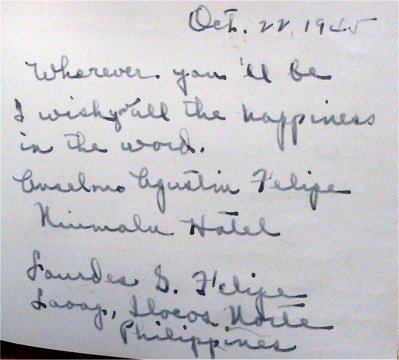 Oct. 22, 1945
Wherever you'll be
I wish you all the happiness
in the word.
Anselmo Agustin Felipe
Niumalu Hotel
Lourdes G. Felipe
Laoag, Ilocos Norte
Philippines